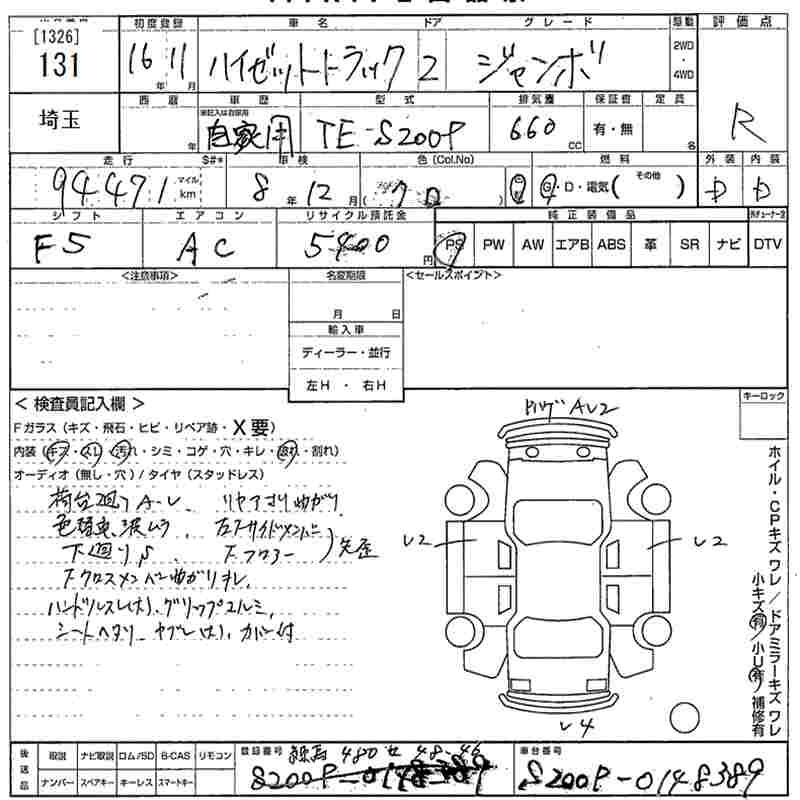 [1326]
131
初度登録 車名 ドア グレード 駆動 評価点
16年 11月 ハイゼットトラック 2 ジャンボ 2WD・4WD
R
埼玉
西暦 車歴 型式 排気量 保証書 定員
年 ※記入は自家用 自家用 TE-S200P 660cc 有・無 名
走行 S#* 車検 色(Col.No) 燃料 外装 内装
94471 マイル km 8年 12月 クロ G・D・電気( その他 ) D D
シフト エアコン リサイクル預託金 純正装備品
F5 AC 5400円 PS PW AW エアB ABS 革 SR ナビ DTV
<注意事項> 名変期限 <セールスポイント>
月 日
輸入車
ディーラー・並行
左H ・ 右H
< 検査員記入欄 >
Fガラス(キズ・飛石・ヒビ・リペア跡・X要)
内装(キズ・スレ・汚れ・シミ・コゲ・穴・キレ・破れ・割れ)
オーディオ(無し・穴)/タイヤ(スタッドレス)
荷台廻りA-U リヤアオリ曲がり
色替車、波ムラ 左Fサイドメンバー
下廻りS Fフロアー )矢歪
Fクロスメンバー曲がりヨレ
ハンドルスレ(大)、グリップユルミ、
シートヘタリ ヤブレ(大)、カバー付
AU2
U2
U2
U4
キーロック
ホイル・CPキズ ワレ/ドアミラーキズ ワレ
小キズ有/小U有 補修有
後送品 取説 ナビ取説 ロム/SD B-CAS リモコン
ナンバー スペアキー キーレス スマートキー
登録番号 練馬 480 せ 48-46
S200P-0148389
車台番号
S200P-0148389